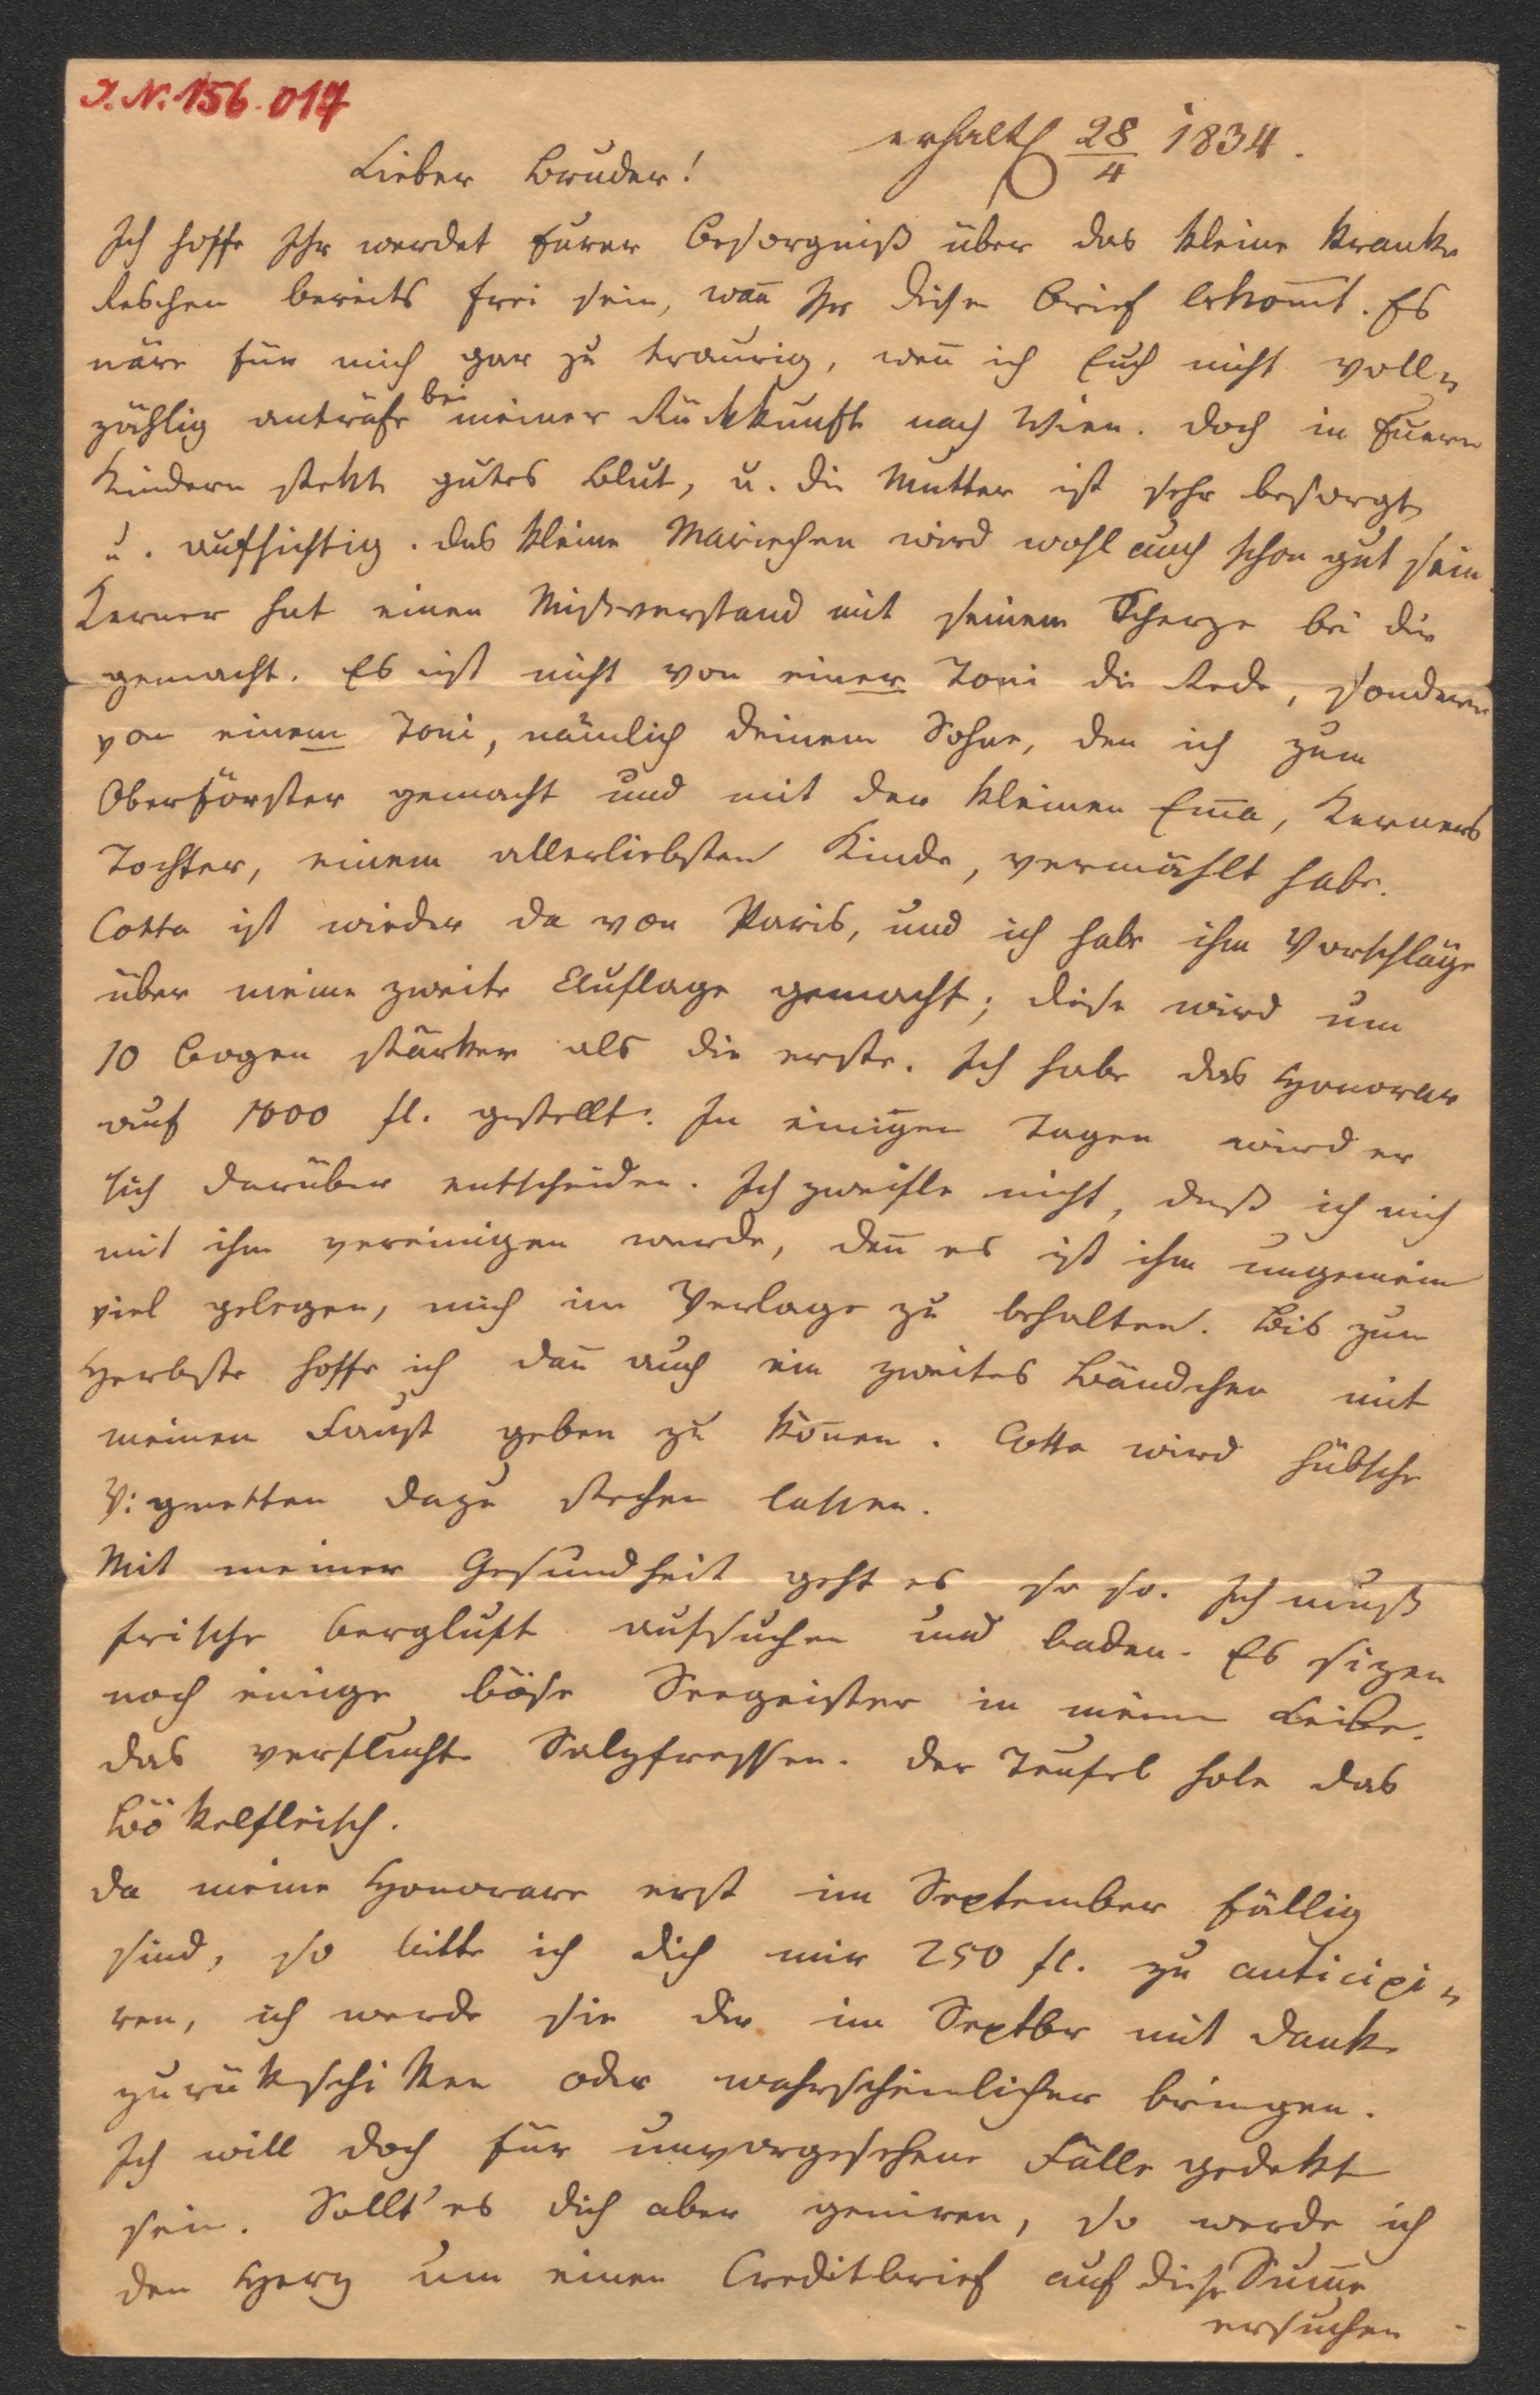 I. N. 156.017
erhalt 28/4 1834.
Lieber Bruder!
Ich hoffe Ihr werdet Eurer Besorgniß über das kleine kranke
Reschen bereits frei sein, wañ Ihr diesen Brief bekom̄t. Es
wäre für mich gar zu traurig, weñ ich Euch nicht voll-
zählig anträfe bei meiner Rückkunft nach Wien. Doch in Euern
Kindern stekt gutes Blut, u. die Mutter ist sehr besorgt
u. aufsichtig. Das kleine Mariechen wird wohl auch schon gut sein.
Kerner hat einen Missverstand mit seinem Scherze bei dir
gemacht. Es ist nicht von einer Toni die Rede, sondern
von einem Toni, nämlich deinem Sohne, den ich zum
Oberförster gemacht und mit der kleinen Em̄a, Kerners
Tochter, einem allerliebsten Kinde, vermählt habe.
Cotta ist wieder da von Paris, und ich habe ihm Vorschläge
über meine zweite Auflage gemacht; diese wird um
10 Bogen stärker als die erste. Ich habe das Honorar
auf 1000 fl. gestellt. In einigen Tagen wird er
sich darüber entscheiden. Ich zweifle nicht, daß ich mich
mit ihm vereinigen werde, deñ es ist ihm ungemein
viel gelegen, mich im Verlage zu behalten. Bis zum
Herbste hoffe ich dañ auch ein zweites Bändchen mit
meinem Faust geben zu köñen. Cotta wird hübsche
Vignetten dazu stechen lassen.
Mit meiner Gesundheit geht es so so. Ich muß
frische Bergluft aufsuchen und baden. Es sizen
noch einige böse Seegeister in meinem Leibe.
Das verfluchte Salzfressen. Der Teufel hole das
Bökelfleisch.
Da meine Honorare erst im September fällig
sind, so bitte ich dich mir 250 fl. zu anticipi-
ren, ich werde sie dir im Septbr mit Dank
zurükschiken oder wahrscheinlicher bringen.
Ich will doch für unvorgesehene Fälle gedekt
sein. Sollt' es dich aber geniren, so werde ich
den Herz um einen Creditbrief auf diese Sum̄e
ersuchen